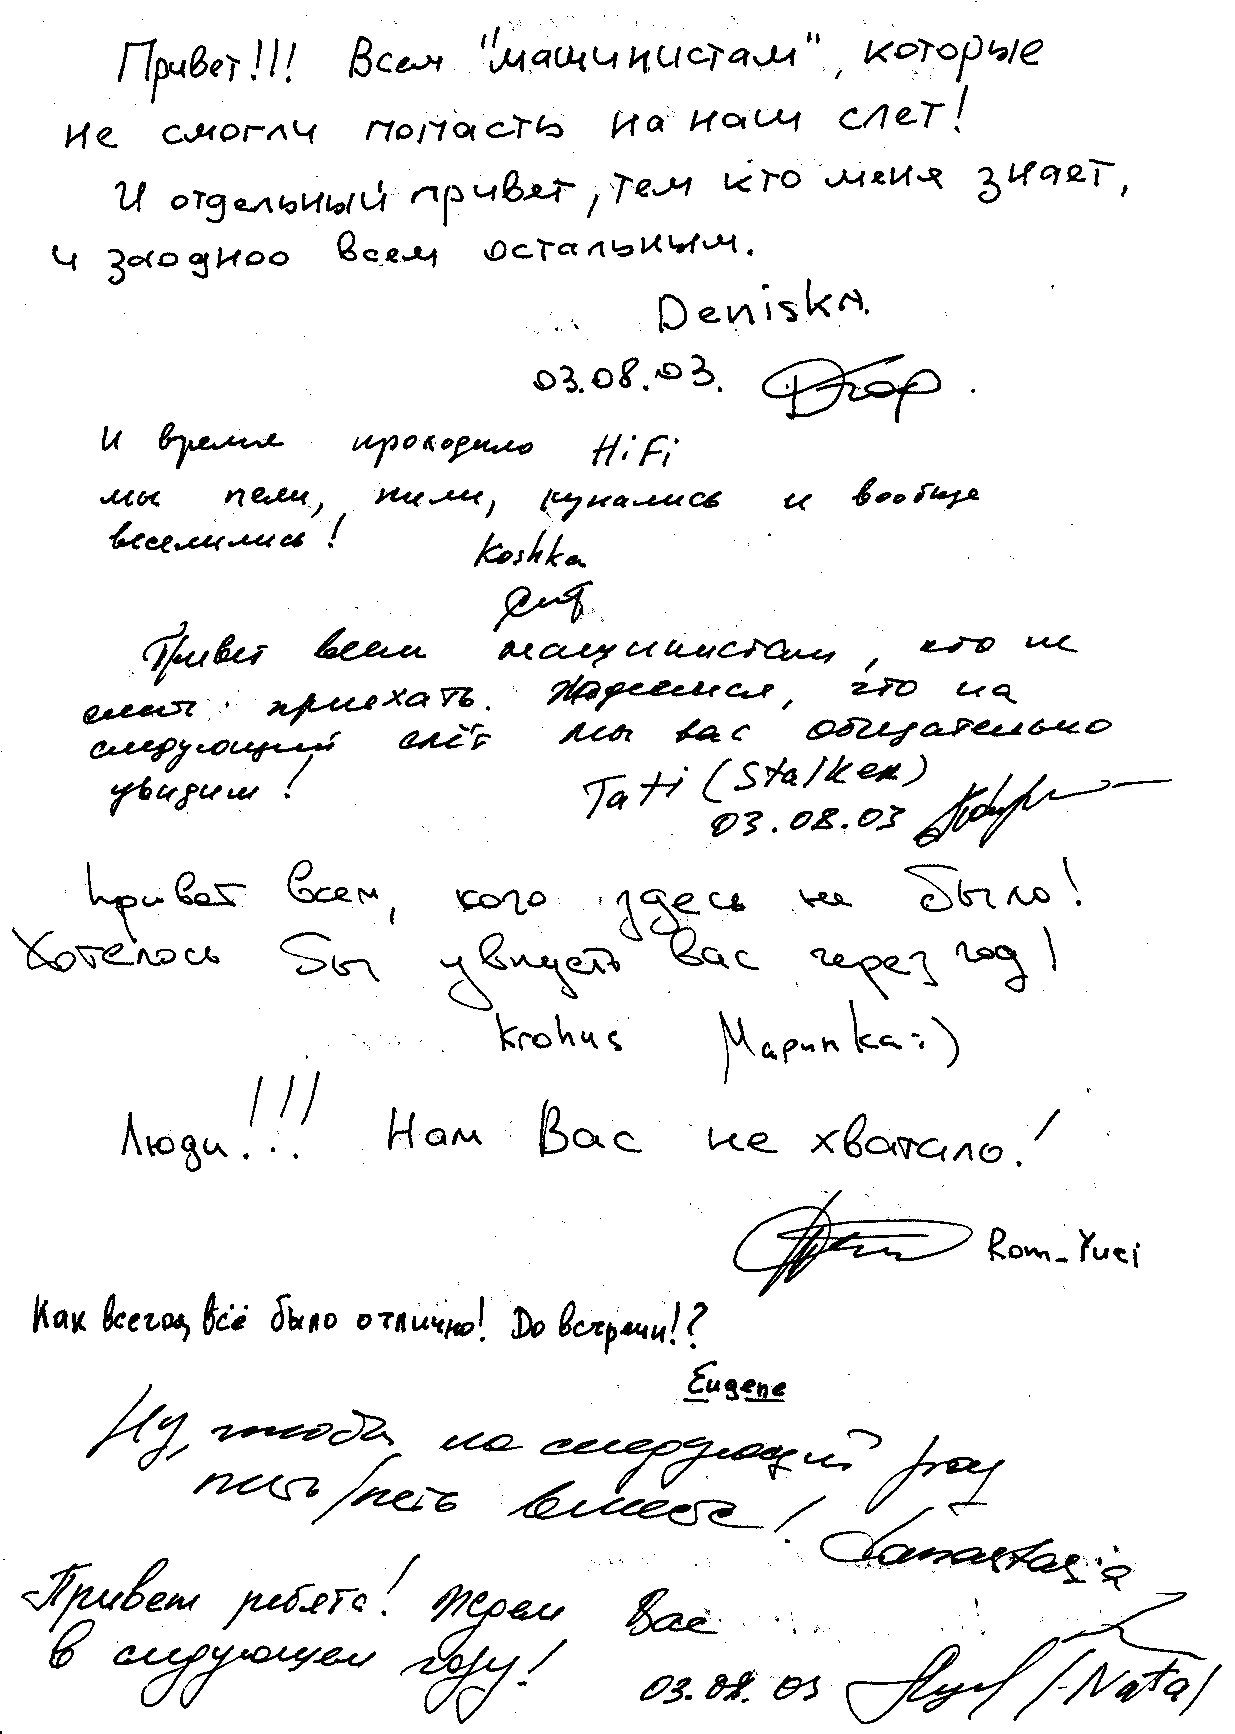 Привет!!! Всем "машинистам", которые
не смогли попасть на наш слет!
И отдельный привет, тем кто меня знает,
и заодноо всем остальным.
Deniska.
03.08.03.
И время проходило HiFi
мы пели, пили, купались и вообще
веселились!
Koshka
Привет всем машинистам, кто не
смог приехать. Надеемся, что на
следующий слёт мы вас обязательно
увидим!
Tati (Stalker)
03.08.03
Привет всем, кого здесь не было!
Хотелось бы увидеть вас через год!
Krohus Маринka:)
Люди!!! Нам Вас не хватало!
Rom_Yuri
Как всегда, всё было отлично! До встречи!?
Eugene
Ну, чтобы на следующий год
пить/петь вместе!
Привет ребята! Ждем Вас
в следующем году!
03.08.03 Natal